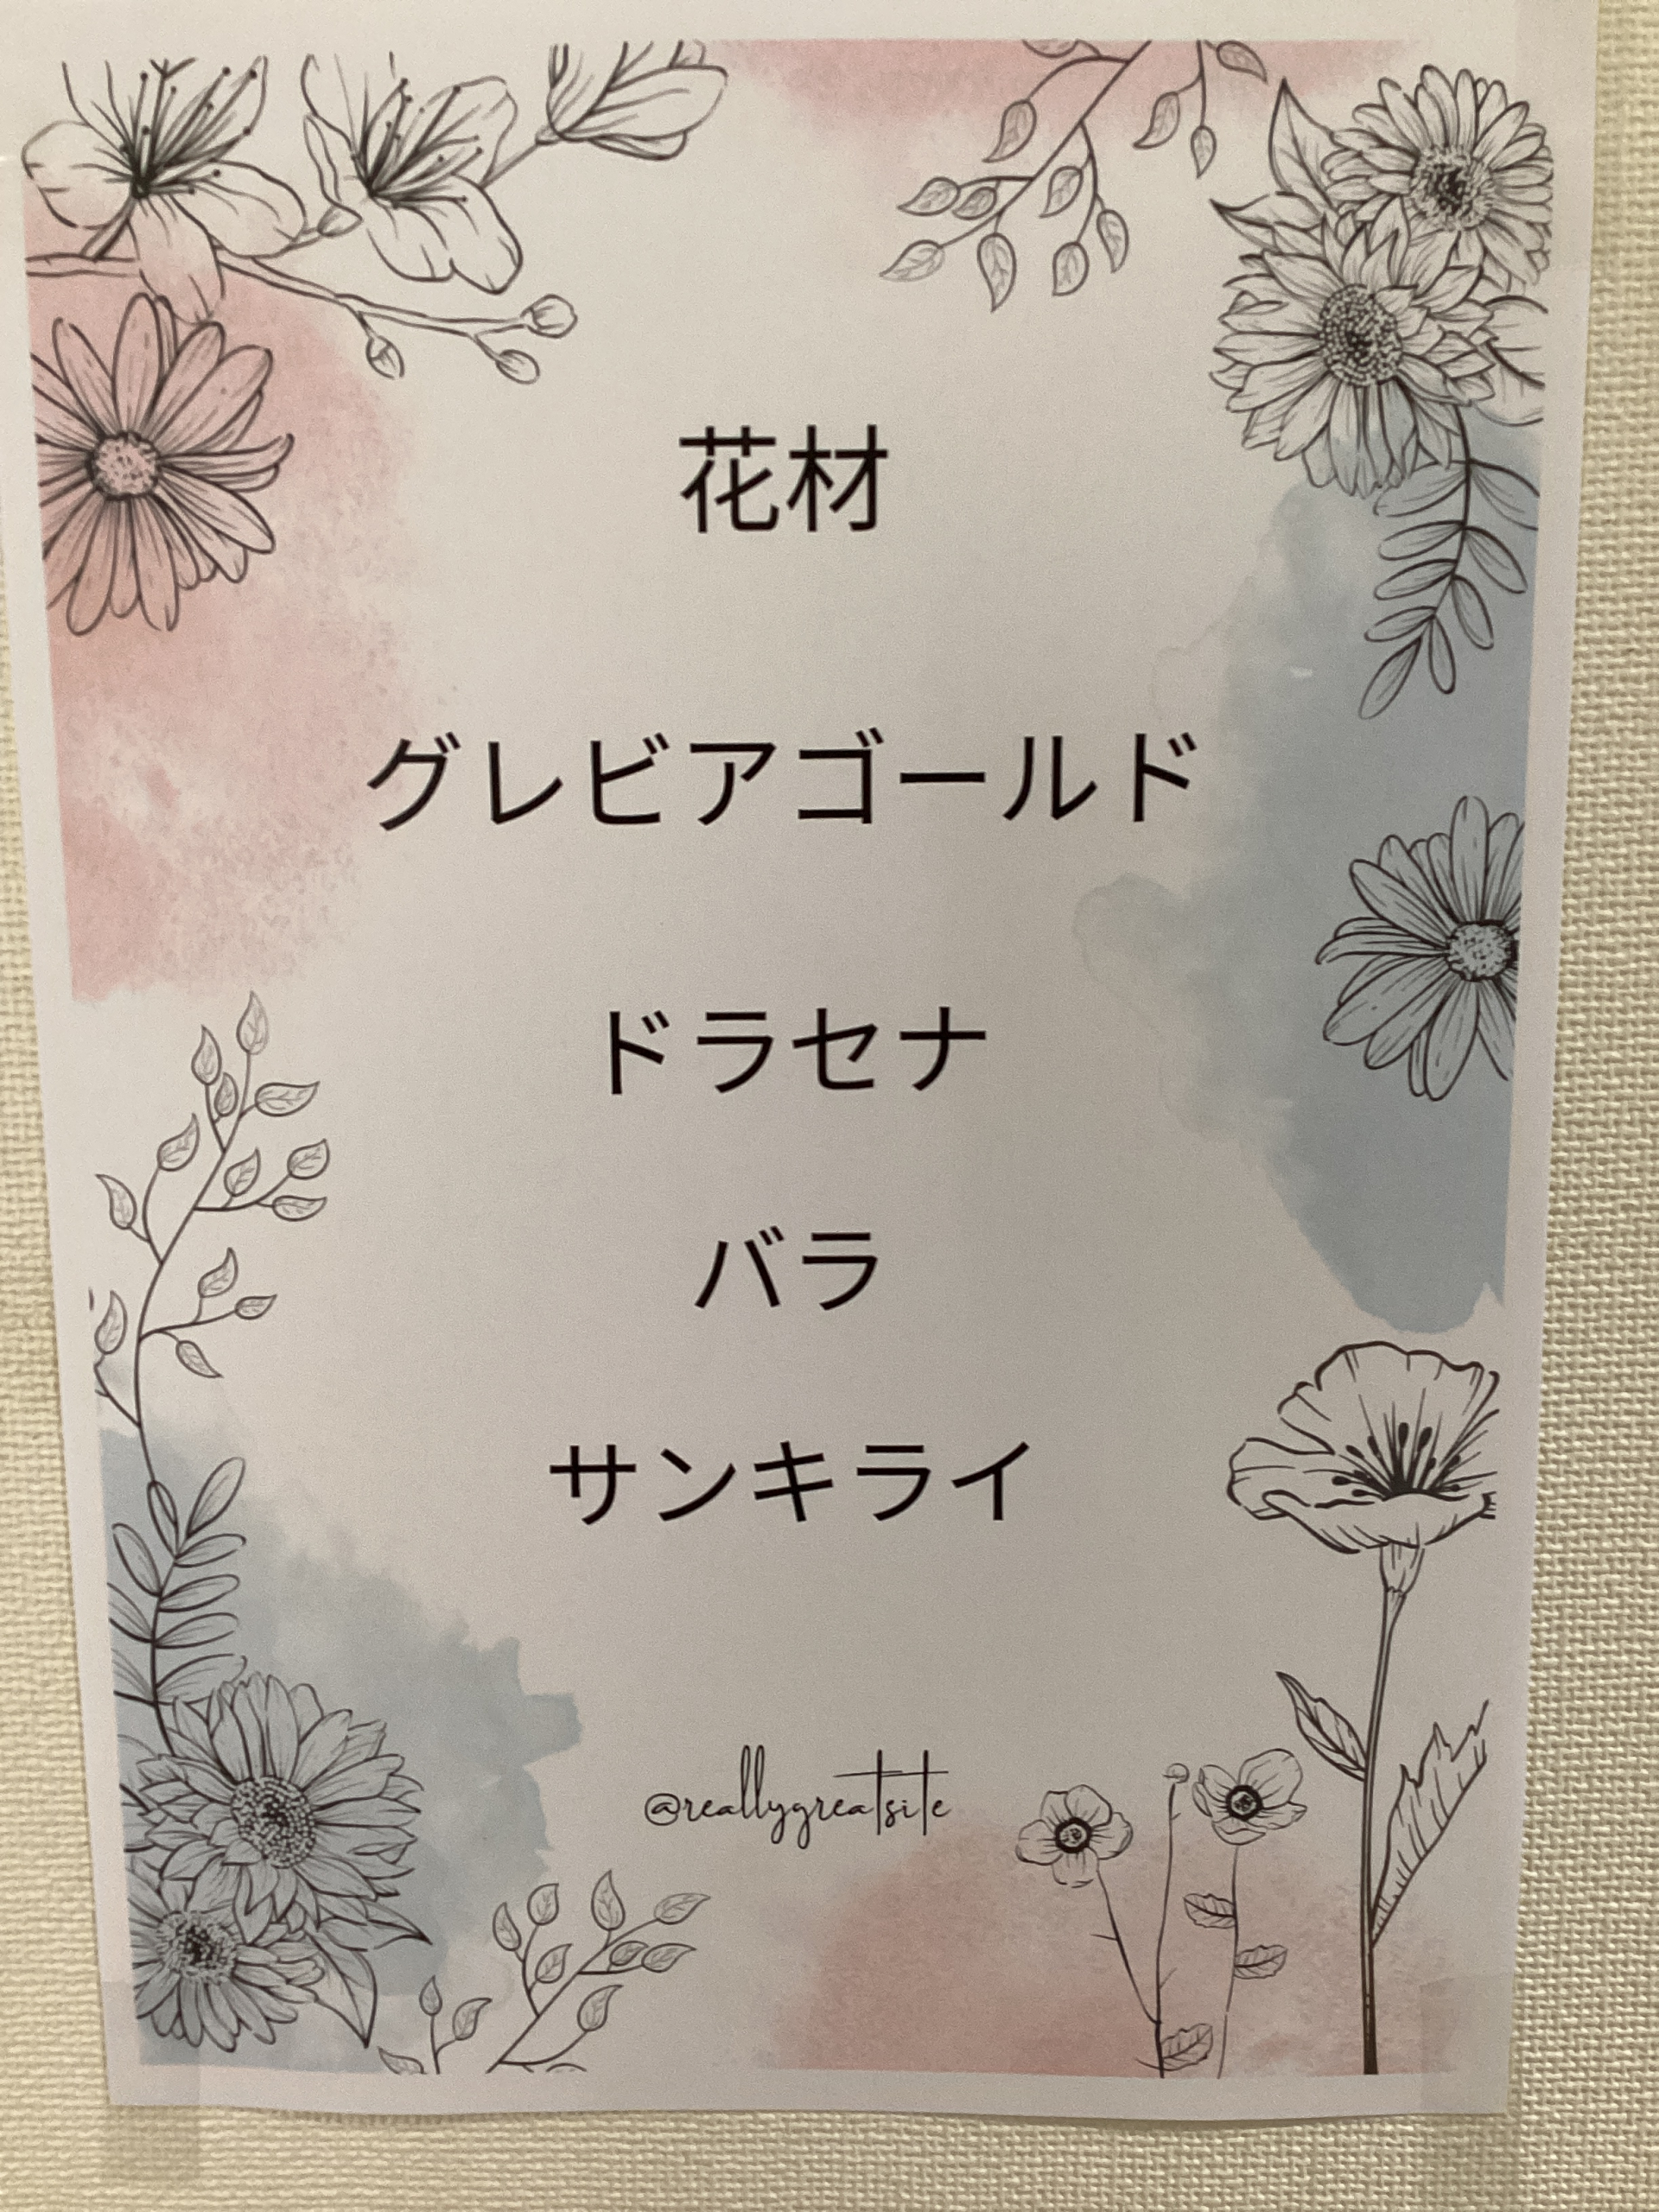 花材
グレビアゴールド
ドラセナ
バラ
サンキライ
@reallygreatsite